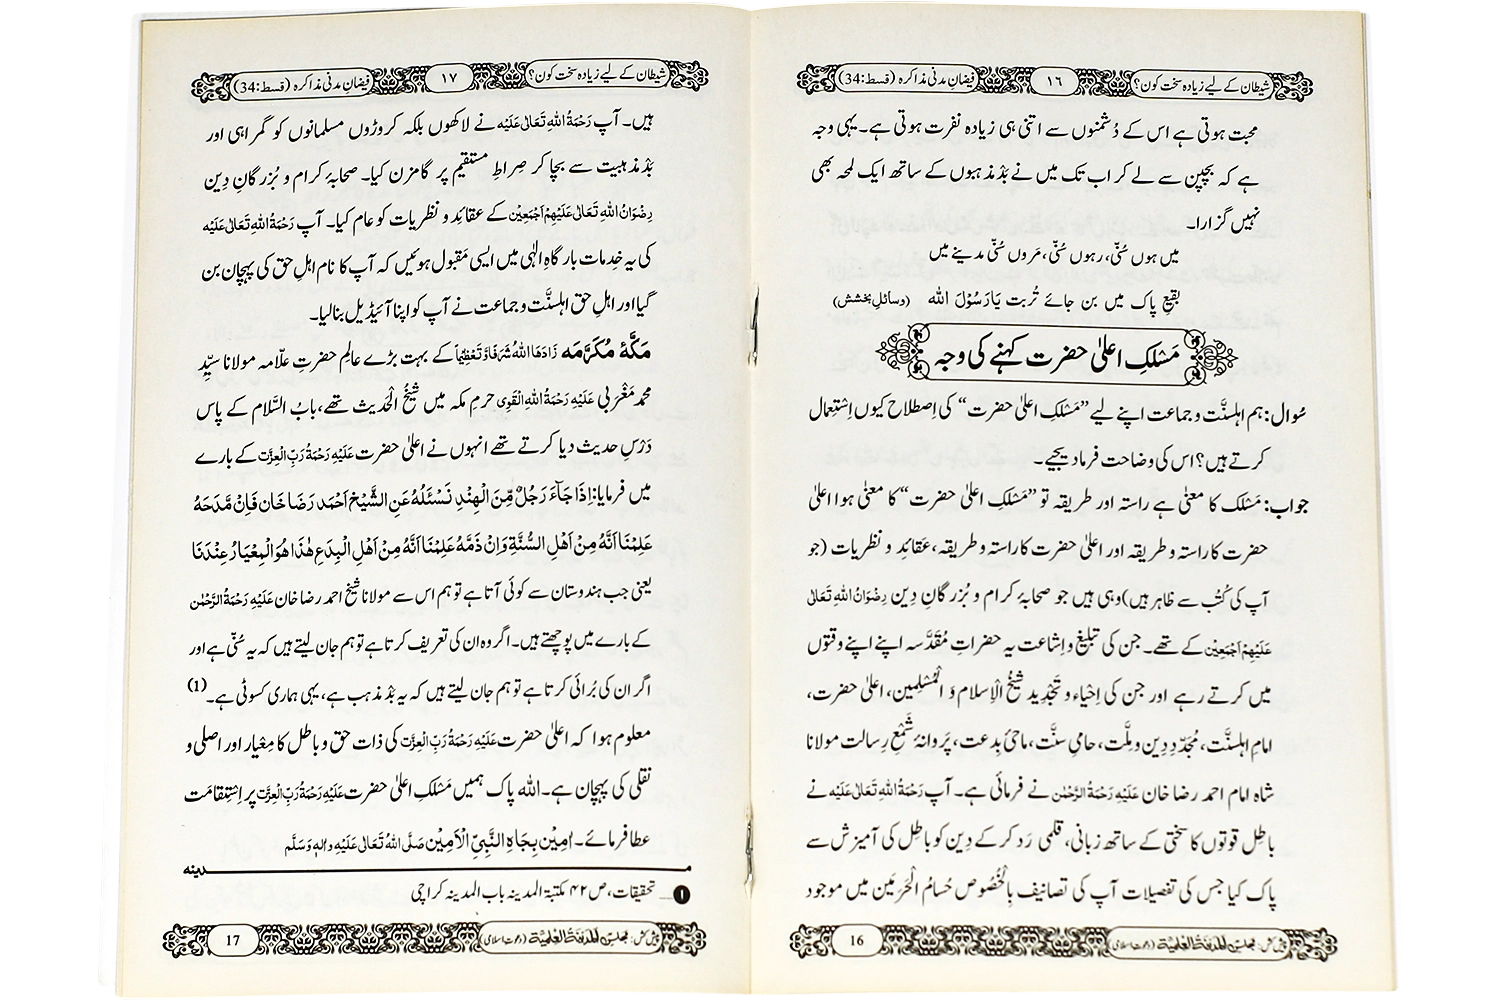 شیطان کے لیے زیادہ سخت کون؟
١٦
فیضانِ مدنی مذاکرہ (قسط:34)
محبت ہوتی ہے اس کے دُشمنوں سے اتنی ہی زیادہ نفرت ہوتی ہے۔ یہی وجہ
ہے کہ بچپن سے لے کر اب تک میں نے بَدْ مذہبوں کے ساتھ ایک لمحہ بھی
نہیں گزارا۔
میں ہوں سُنّی، رہوں سُنّی، مَروں سُنّی مدینے میں
بقیعِ پاک میں بن جائے تُربت یَارَسُوْلَ اللہ (وسائلِ بخشش)
مَسْلکِ اعلیٰ حضرت کہنے کی وجہ
سُوال: ہم اہلسنَّت و جماعت اپنے لیے ”مَسْلکِ اعلیٰ حضرت“ کی اِصطلاح کیوں اِسْتِعمال
کرتے ہیں؟ اس کی وضاحت فرما دیجیے۔
جواب: مَسْلک کا معنیٰ ہے راستہ اور طریقہ تو ”مَسْلکِ اعلیٰ حضرت“ کا معنیٰ ہوا اعلیٰ
حضرت کا راستہ و طریقہ اور اعلیٰ حضرت کا راستہ و طریقہ، عَقائد و نظریات (جو
آپ کی کُتُب سے ظاہر ہیں) وہی ہیں جو صحابۂ کرام و بُزرگانِ دِین رِضْوَانُ اللہِ تَعَالٰی
عَلَیْہِمْ اَجْمَعِیْن کے تھے۔ جن کی تبلیغ و اِشاعت یہ حضراتِ مُقَدَّسہ اپنے اپنے وقتوں
میں کرتے رہے اور جن کی اِحْیاء و تَجْدِید شیخُ الْاِسلام وَ الْمُسْلِمین، اعلیٰ حضرت،
امامِ اہلسنَّت، مُجَدِّدِ دِین و مِلَّت، حامیِ سنَّت، ماحیٔ بِدعت، پَروانۂ شَمْعِ رِسالت مولانا
شاہ امام احمد رضا خان عَلَیْہِ رَحْمَۃُ الرَّحْمٰن نے فرمائی ہے۔ آپ رَحْمَۃُ اللہِ تَعَالٰی عَلَیْہ نے
باطِل قوتوں کا سختی کے ساتھ زبانی، قلمی رَد کر کے دِین کو باطِل کی آمیزش سے
پاک کیا جس کی تفصیلات آپ کی تصانیف بِالْخُصُوص حُسامُ الْحَرَمَین میں موجود
پیش کش: مجلس المدینۃ العلمیۃ (دعوتِ اسلامی)
16
شیطان کے لیے زیادہ سخت کون؟
١٧
فیضانِ مدنی مذاکرہ (قسط:34)
ہیں۔ آپ رَحْمَۃُ اللہِ تَعَالٰی عَلَیْہ نے لاکھوں بلکہ کروڑوں مسلمانوں کو گمراہی اور
بَدْ مذہبیت سے بچا کر صِراطِ مستقیم پر گامزن کیا۔ صحابۂ کرام و بُزرگانِ دِین
رِضْوَانُ اللہِ تَعَالٰی عَلَیْہِمْ اَجْمَعِیْن کے عقائد و نظریات کو عام کیا۔ آپ رَحْمَۃُ اللہِ تَعَالٰی عَلَیْہ
کی یہ خِدمات بارگاہِ الٰہی میں ایسی مَقبول ہوئیں کہ آپ کا نام اہلِ حق کی پہچان بن
گیا اور اہلِ حق اہلسنَّت و جماعت نے آپ کو اپنا آئیڈیل بنا لیا۔
مَکَّۂ مُکَرَّمَہ زَادَھَا اللہُ شَرَفًا وَّ تَعْظِیْمًا کے بہت بڑے عالِم حضرتِ علّامہ مولانا سیِّد
محمد مَغْرَبی عَلَیْہِ رَحْمَۃُ اللہِ الْقَوِی حرمِ مکہ میں شیخُ الْحَدِیث تھے، بابُ السَّلام کے پاس
دَرْسِ حدیث دیا کرتے تھے انہوں نے اعلیٰ حضرت عَلَیْہِ رَحْمَۃُ رَبِّ الْعِزَّت کے بارے
میں فرمایا: اِذَا جَآءَ رَجُلٌ مِّنَ الْہِنْدِ نَسْئَلُہٗ عَنِ الشَّیْخِ اَحْمَد رَضَا خَان فَاِنْ مَّدَحَہٗ
عَلِمْنَا اَنَّہٗ مِنْ اَھْلِ السُّنَّۃِ وَاِنْ ذَمَّہٗ عَلِمْنَا اَنَّہٗ مِنْ اَھْلِ الْبِدَعِ ھٰذَا ھُوَ الْمِعْیَارُ عِنْدَنَا
یعنی جب ہندوستان سے کوئی آتا ہے تو ہم اس سے مولانا شیخ احمد رضا خان عَلَیْہِ رَحْمَۃُ الرَّحْمٰن
کے بارے میں پوچھتے ہیں۔ اگر وہ ان کی تعریف کرتا ہے تو ہم جان لیتے ہیں کہ یہ سُنّی ہے اور
اگر ان کی بُرائی کرتا ہے تو ہم جان لیتے ہیں کہ یہ بَدْ مذہب ہے، یہی ہماری کسوٹی ہے۔ (1)
معلوم ہوا کہ اعلیٰ حضرت عَلَیْہِ رَحْمَۃُ رَبِّ الْعِزَّت کی ذات حق و باطل کا مِعْیار اور اصلی و
نقلی کی پہچان ہے۔ اللہ پاک ہمیں مَسْلکِ اعلیٰ حضرت عَلَیْہِ رَحْمَۃُ رَبِّ الْعِزَّت پر اِسْتِقامت
عطا فرمائے۔ اٰمِیْن بِجَاہِ النَّبِیِّ الْاَمِیْن صَلَّی اللہُ تَعَالٰی عَلَیْہِ وَاٰلِہٖ وَسَلَّم
مـــدینہ
❶… تحقیقات، ص ۴۲ مکتبۃ المدینہ باب المدینہ کراچی
پیش کش: مجلس المدینۃ العلمیۃ (دعوتِ اسلامی)
17